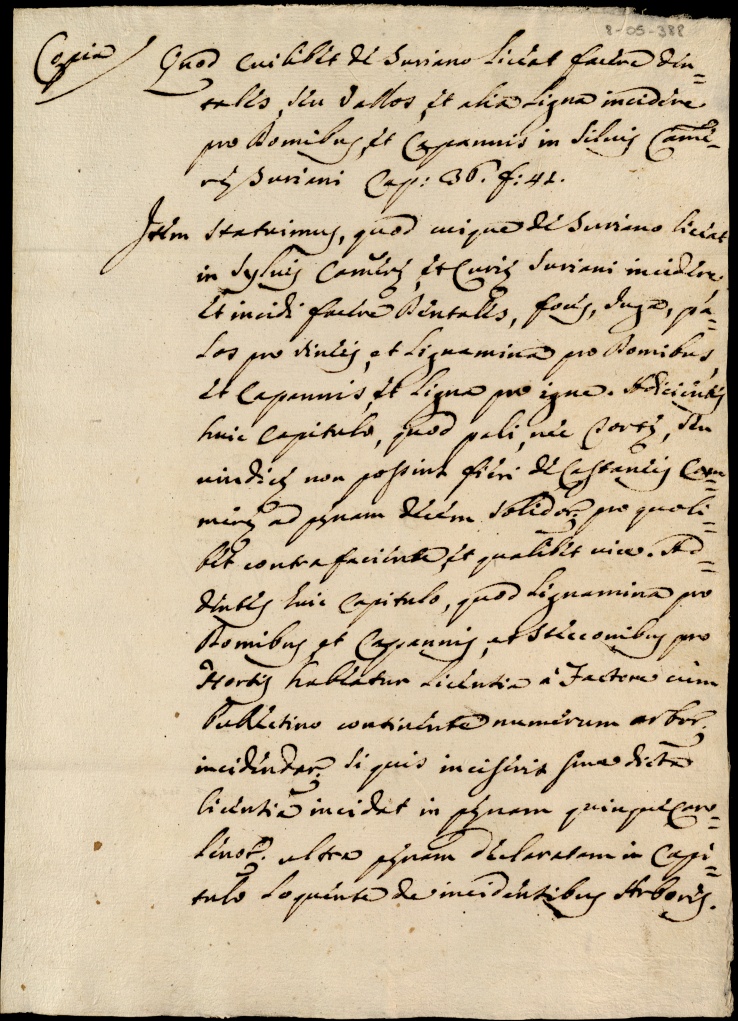 8-05-388
Copia / Quod cuilibet de Suriano liceat facere den=
tales, seu Vallos, et alia Ligna incidere
pro Domibus, et Capannis in Silvis Came=
re Suriani Cap: 36. f: 41.
Item Statuimus, quod cuique de Suriano liceat
in Sylvis Camere, et Curie Suriani incidere,
et incidi facere Dentales, Juga, pa=
los pro vineis, et Lignamina pro Domibus,
et Capannis, et Ligna pro igne. Adicientes
huic Capitulo, quod pali, nec seu
non possint fieri de Castaneis Com=
ad penam decem Solidor: pro quoli=
bet contrafaciente, et qualibet vice. Ad=
dentes huic Capitulo, quod Lignamina pro
Domibus, et Capannis, et Stecconibus pro
Hortis habeatur Licentia a Factore cum
Bullettino continente numerum arbor:
incidendar: Si quis inciserit sine dicta
licentia incidat in penam quinque Caro=
linor: ultra penam declaratam in Capi=
tulo loquente de incidentibus Arbores.